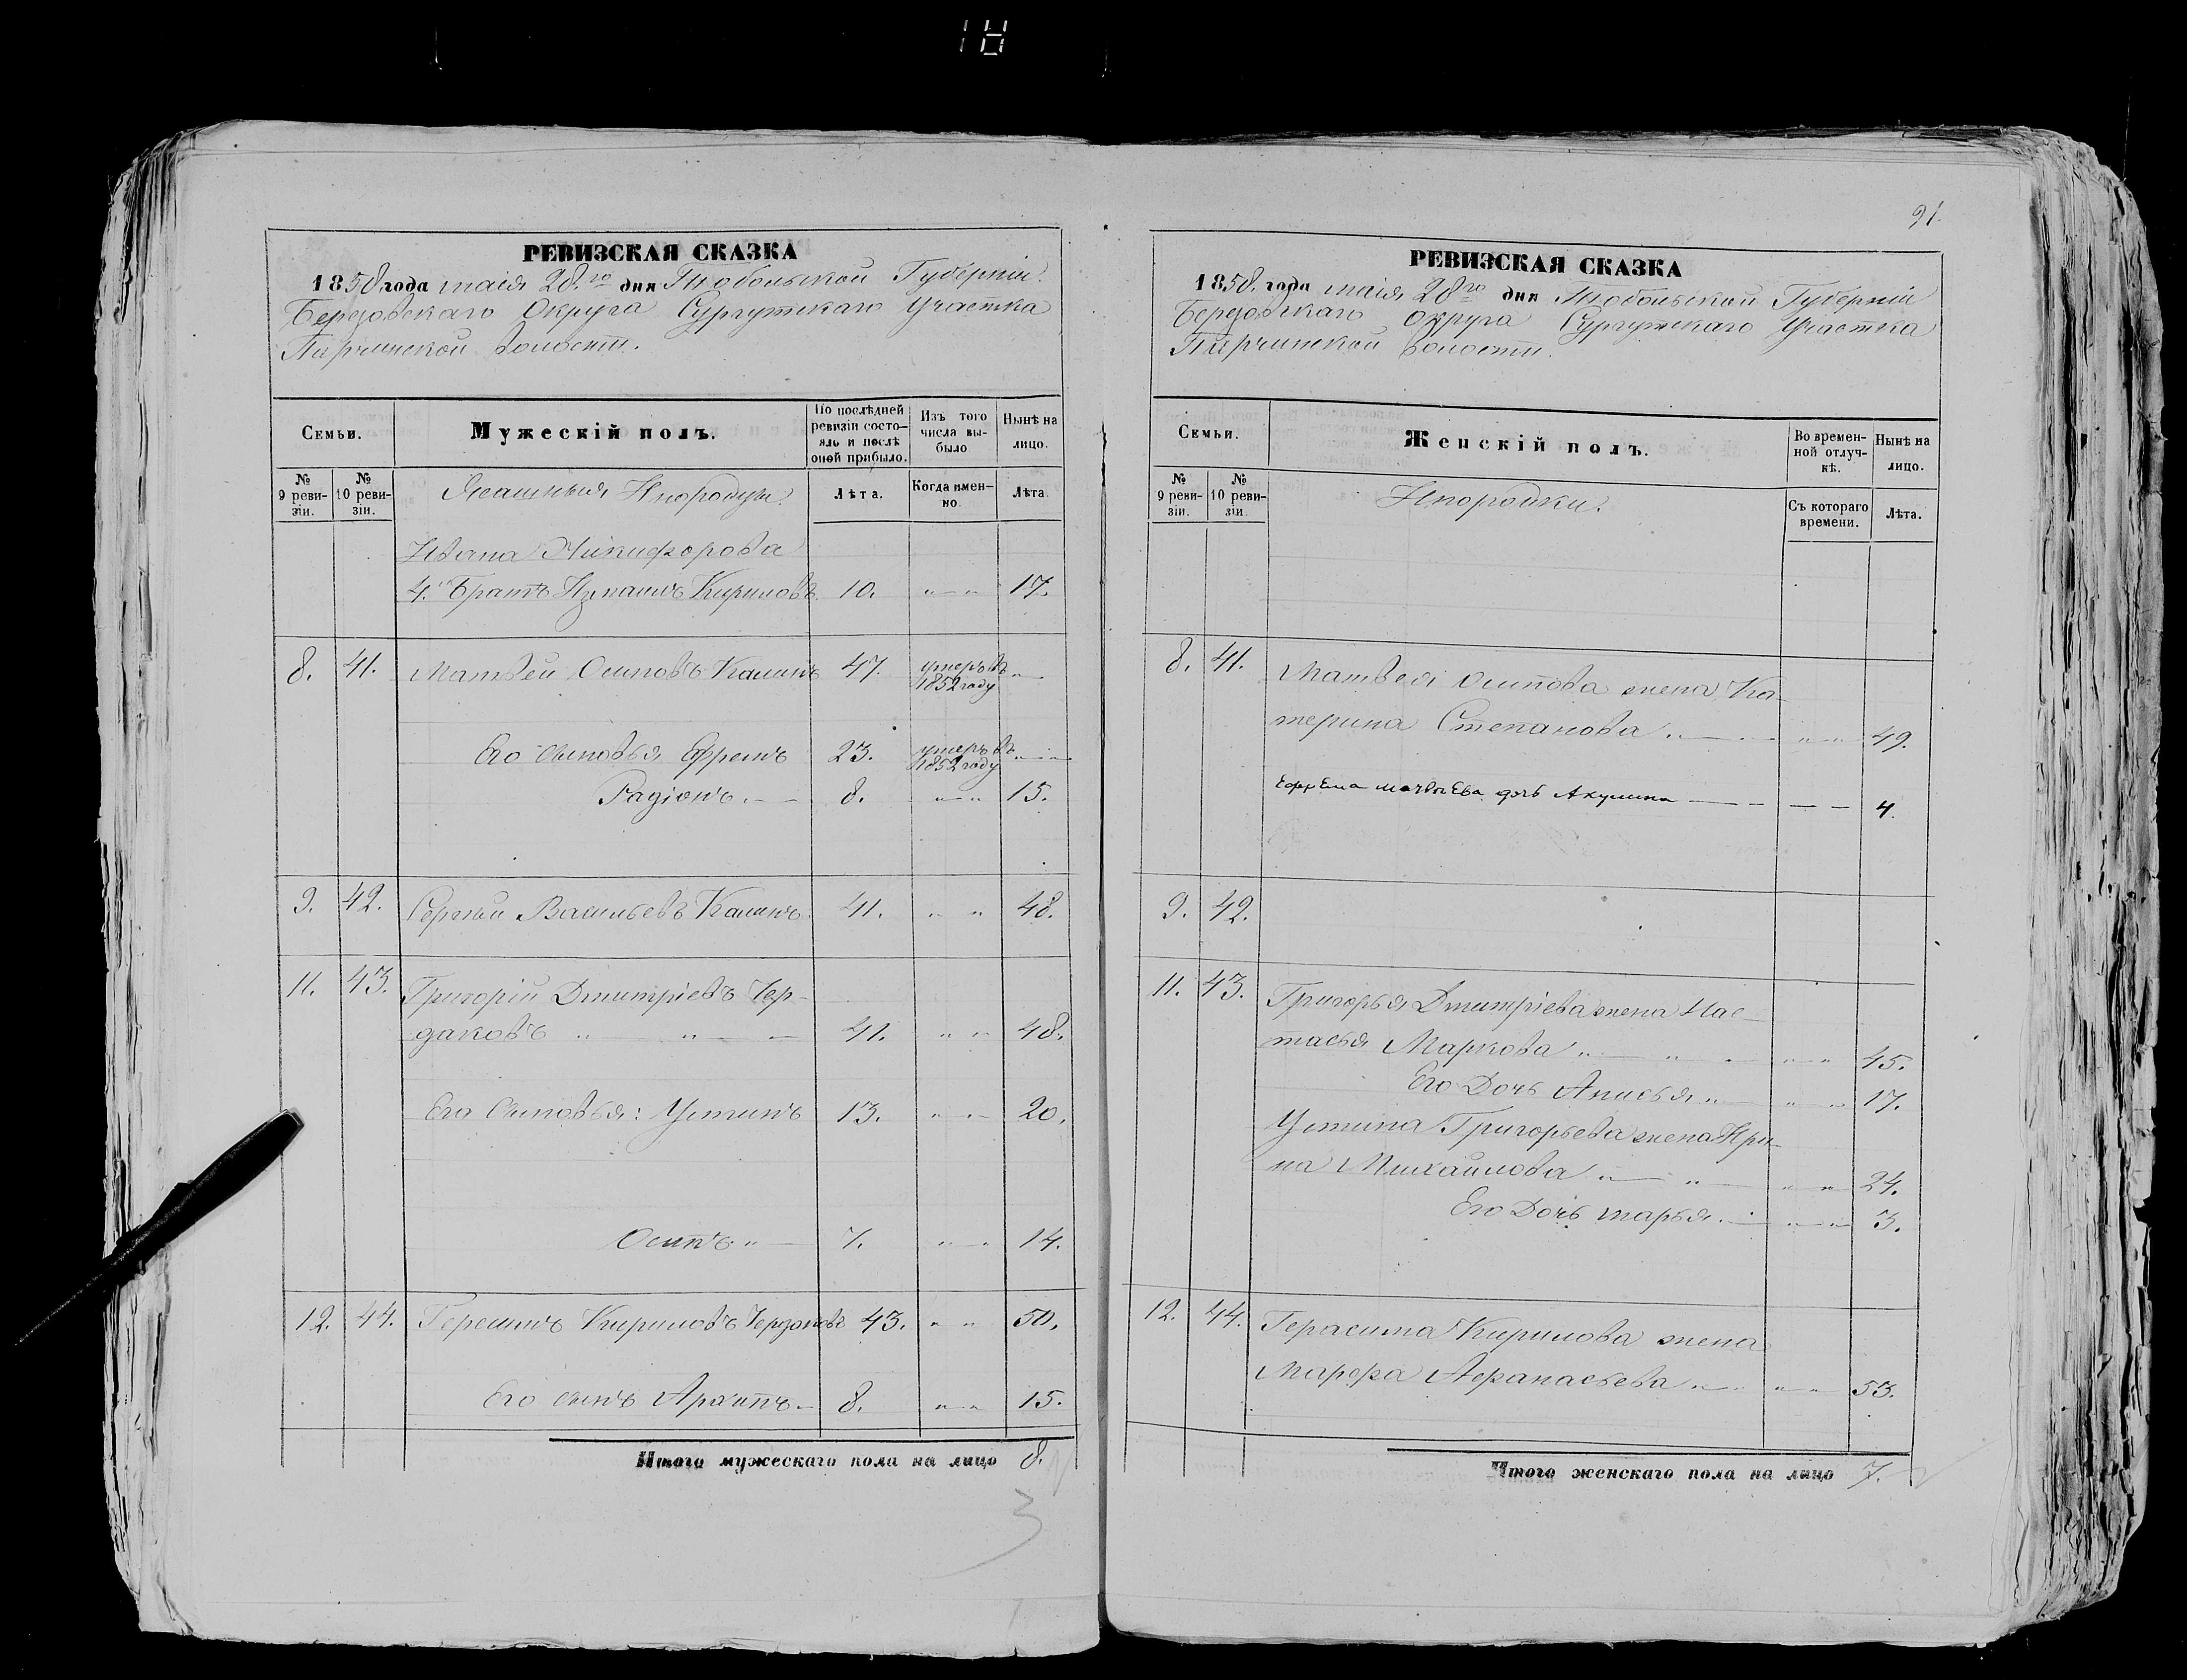 18
РЕВИЗСКАЯ СКАЗКА
1858 года маія 28.го дня Тобольской Губерніи
Березовскаго Округа Сургутскаго Участка
Пирчинской волости.
Семьи.
Мужескій полъ.
По послѣдней ревизіи состояло и послѣ оной прибыло.
Изъ того числа выбыло
Нынѣ на лицо.
№ 9 ревизіи.
№ 10 ревизіи.
Ясашныя Инородцы.
Лѣта.
Когда именно.
Лѣта.
Ивана Никифорова
4. Братъ Кириловъ 10. " " 17.
8. 41. Матвей Осиповъ Калинъ 47. умеръ въ 1852 году "
Его сыновья Ефремъ 23. умеръ въ 1852 году "
Радіонъ 8. " " 15.
9. 42. Сергѣй Васильевъ Калинъ 41. " " 48.
11. 43. Григорій Дмитріевъ Чер-
даковъ " " 41. " " 48.
Его Сыновья: Устинъ 13. " " 20.
Осипъ " 7. " " 14.
12. 44. Герасимъ Кириловъ Чердаковъ 43. " " 50.
Его сынъ Архипъ 8. " " 15.
Итого мужескаго пола на лицо 8.
3
91.
РЕВИЗСКАЯ СКАЗКА
1858. года маія 28го дня Тобольской Губерніи
Березовскаго Округа Сургутскаго Участка
Пирчинской волости.
Семьи.
Женскій полъ.
Во временной отлучкѣ.
Нынѣ на лицо.
№ 9 ревизіи.
№ 10 ревизіи.
Инородки.
Съ котораго времени.
Лѣта.
8. 41. Матвея Осипова жена Ка-
терина Степанова " " 49.
Ефрема Матвѣева дочь Акулина — — 4.
9. 42.
11. 43. Григорья Дмитріева жена Нас-
тасья Маркова " " " " 45.
Его Дочь Анисья " " " 17.
Устина Григорьева жена Ири-
на Михайлова " " " " 24.
Его Дочь Марья " " 3.
12. 44. Герасима Кирилова жена
Марфа Афанасьева " " " 53.
Итого женскаго пола на лицо 7.